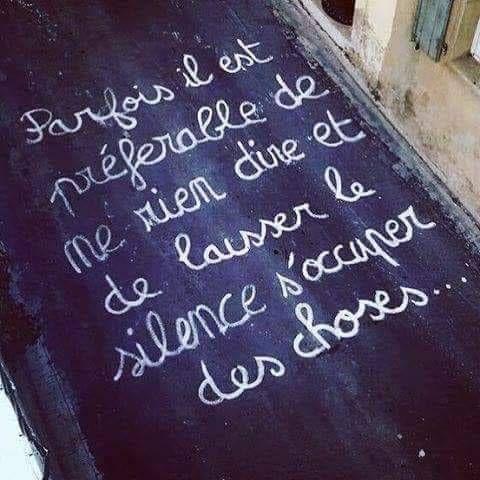 Parfois il est
préferable de
ne rien dire et
de laisser le
silence s'occuper
des choses...